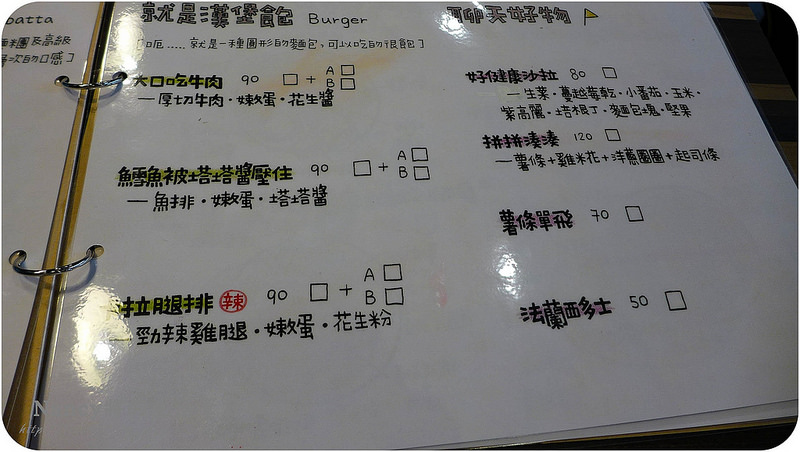 oatta
就是漢堡飽 Burger
[呃..... 就是一種圓形的麵包,可以吃的很飽]
大口吃牛肉 90 □ + A □ B □
— 厚切牛肉・嫩蛋・花生醬
鱈魚被塔塔醬壓住 90 □ + A □ B □
— 魚排・嫩蛋・塔塔醬
拉腿排 辣 90 □ + A □ B □
勁辣雞腿・嫩蛋・花生粉
聊天好物
好健康沙拉 80 □
— 生菜・蔓越莓乾・小番茄・玉米・
紫高麗・培根丁・麵包塊・堅果
拼拼湊湊 120 □
— 薯條+雞米花+洋蔥圈圈+起司條
薯條單飛 70 □
法蘭西多士 50 □